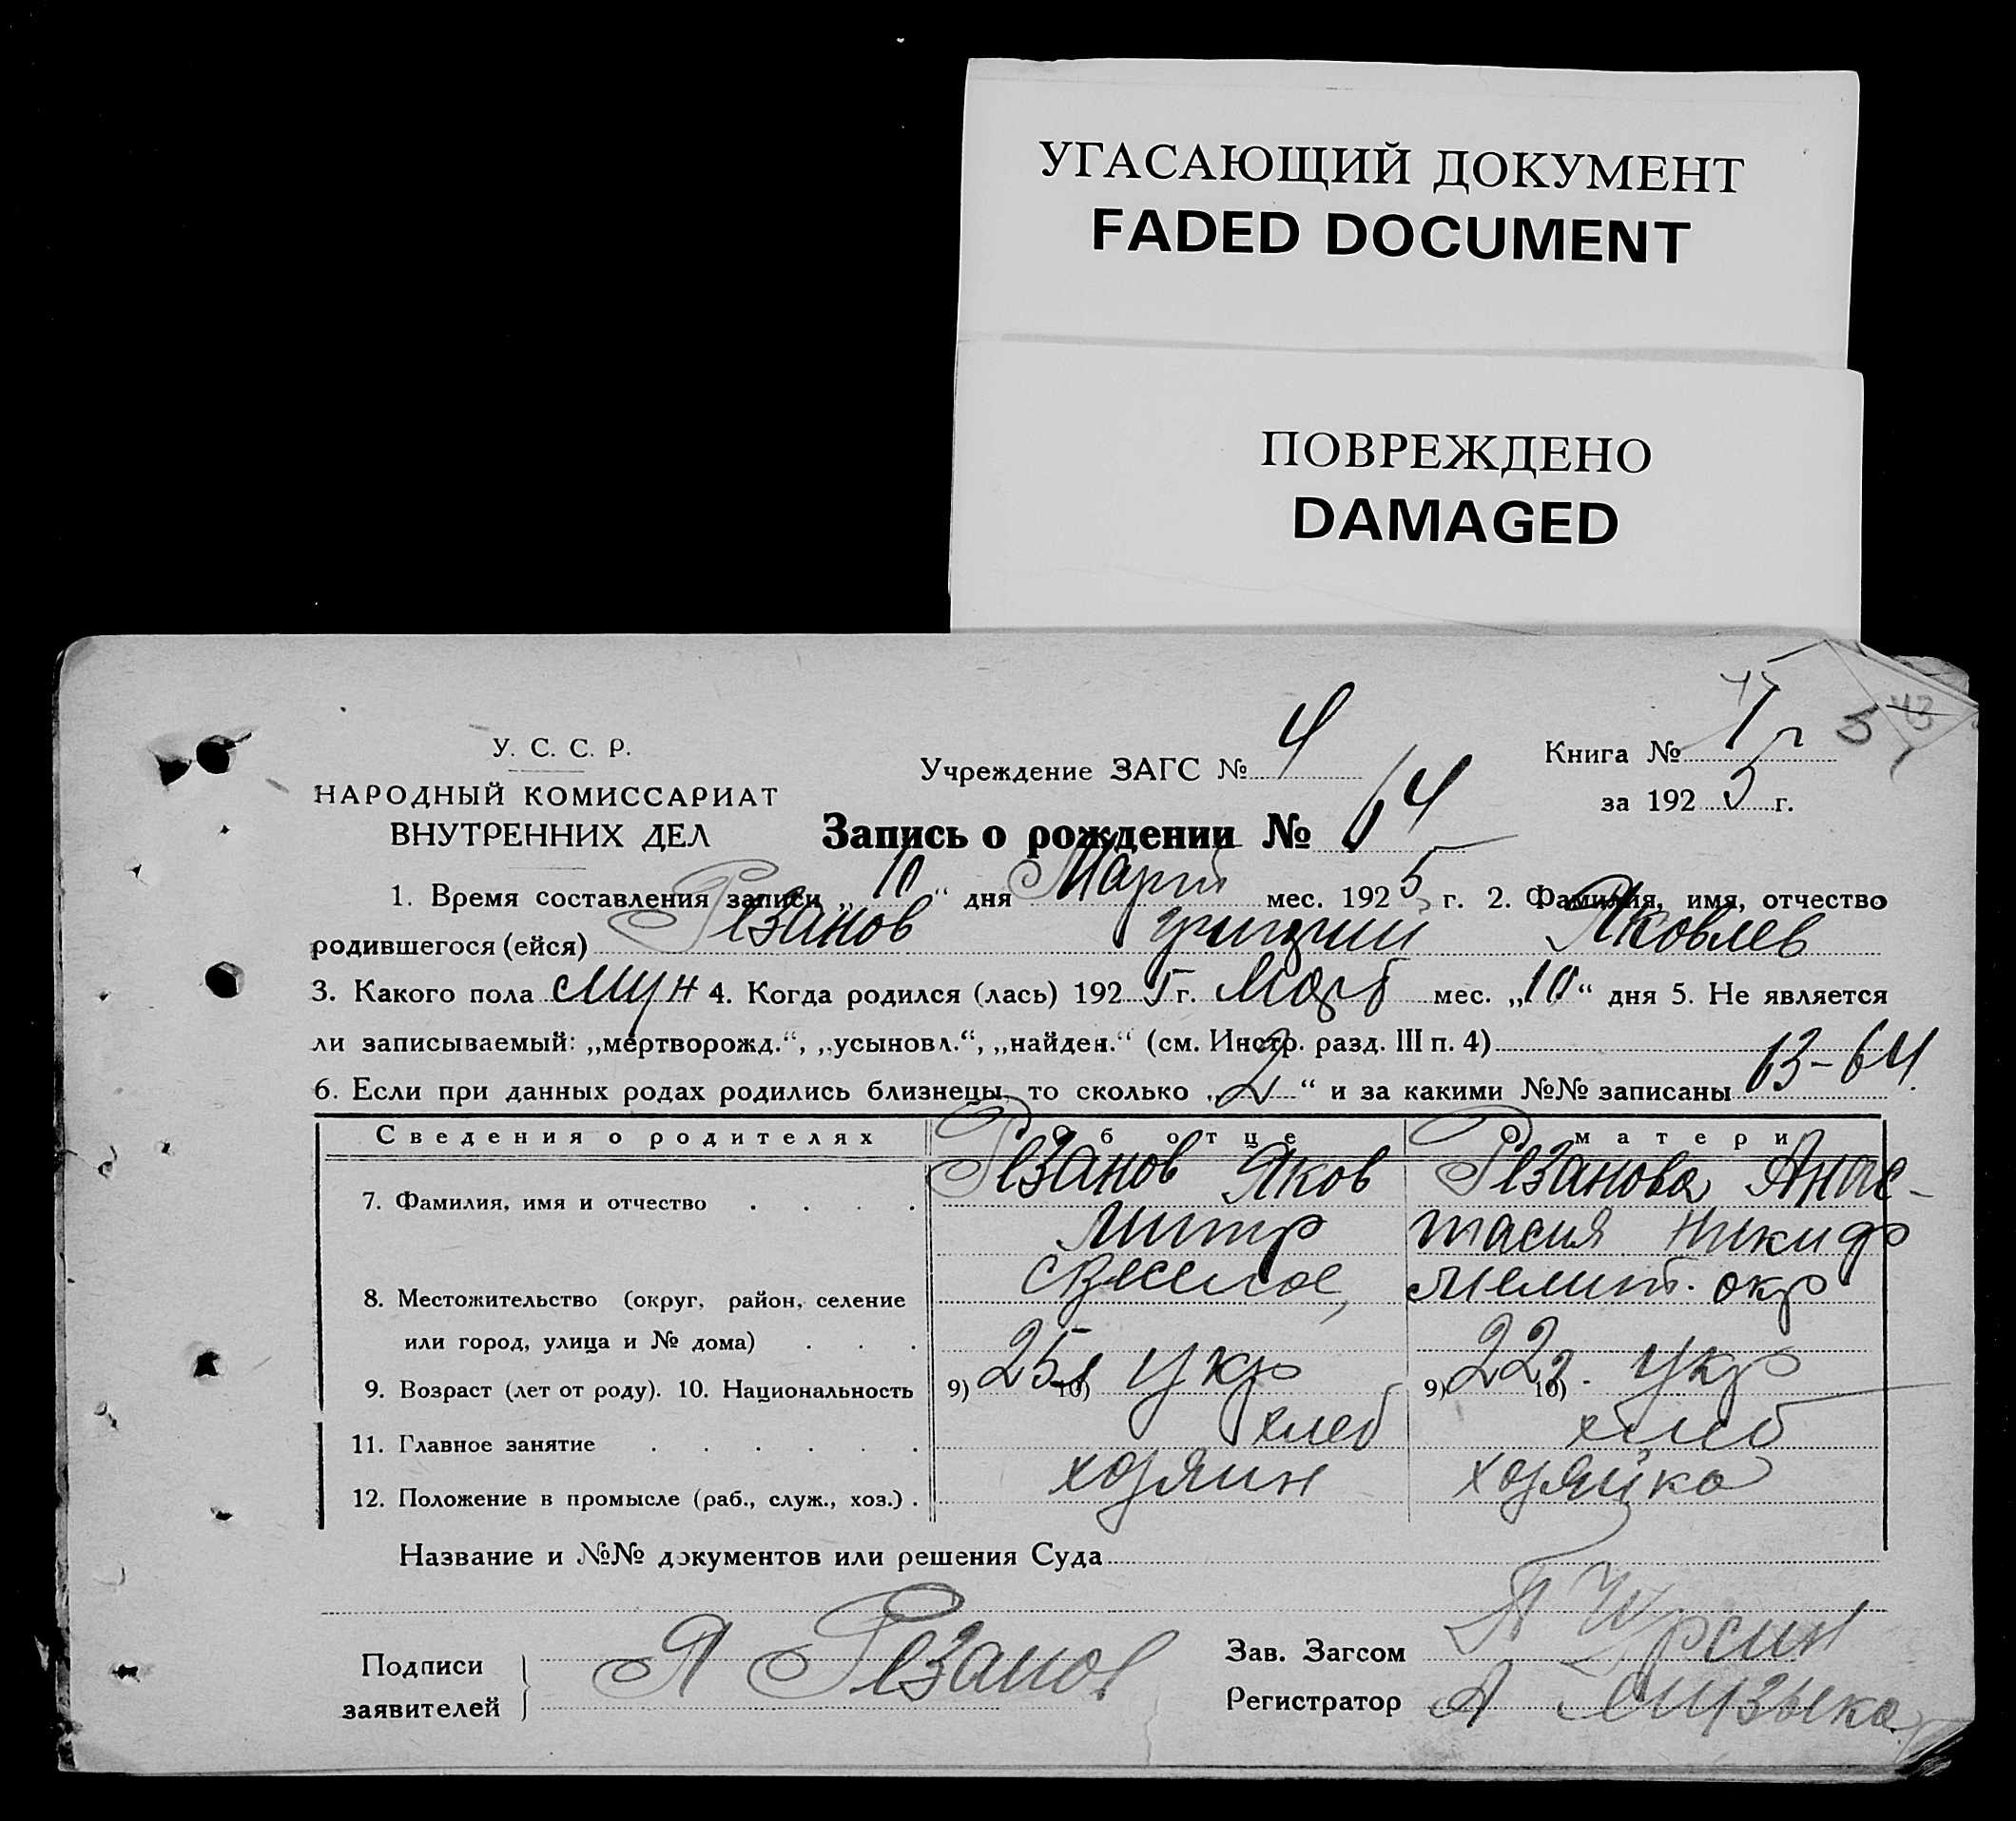 УГАСАЮЩИЙ ДОКУМЕНТ
FADED DOCUMENT
ПОВРЕЖДЕНО
DAMAGED
У. С. С. Р.
НАРОДНЫЙ КОМИССАРИАТ
ВНУТРЕННИХ ДЕЛ
Учреждение ЗАГС № 4
Книга № 1
за 1925 г.
Запись о рождении № 64
1. Время составления записи „10“ дня Март мес. 1925 г. 2. Фамилия, имя, отчество
родившегося (ейся) Резанов Яковлев
3. Какого пола муж 4. Когда родился (лась) 1925 г. Март мес. „10“ дня 5. Не является
ли записываемый: „мертворожд.“, „усыновл.“, „найден.“ (см. Инстр. разд. III п. 4)
6. Если при данных родах родились близнецы, то сколько „2“ и за какими №№ записаны 63-64.
Сведения о родителях Об отце О матери
7. Фамилия, имя и отчество . . . . Резанов Яков Резанова Анас-
Митр тасия Никиф
8. Местожительство (округ, район, селение с Веселое, Мелит. окр
или город, улица и № дома) . . .
9. Возраст (лет от роду). 10. Национальность 9) 25 10) укр 9) 22 10) укр
11. Главное занятие . . . . . . хлеб хлеб
12. Положение в промысле (раб., служ., хоз.) . хозяин хозяйка
Название и №№ документов или решения Суда
Подписи
заявителей
Я Резанов
Зав. Загсом
Регистратор А Музыка